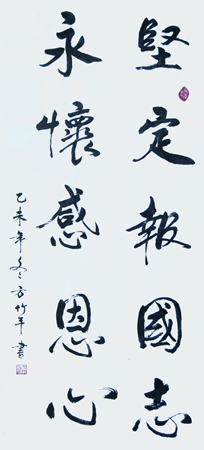 堅定報國志
永懷感恩心
乙未年冬方竹平書